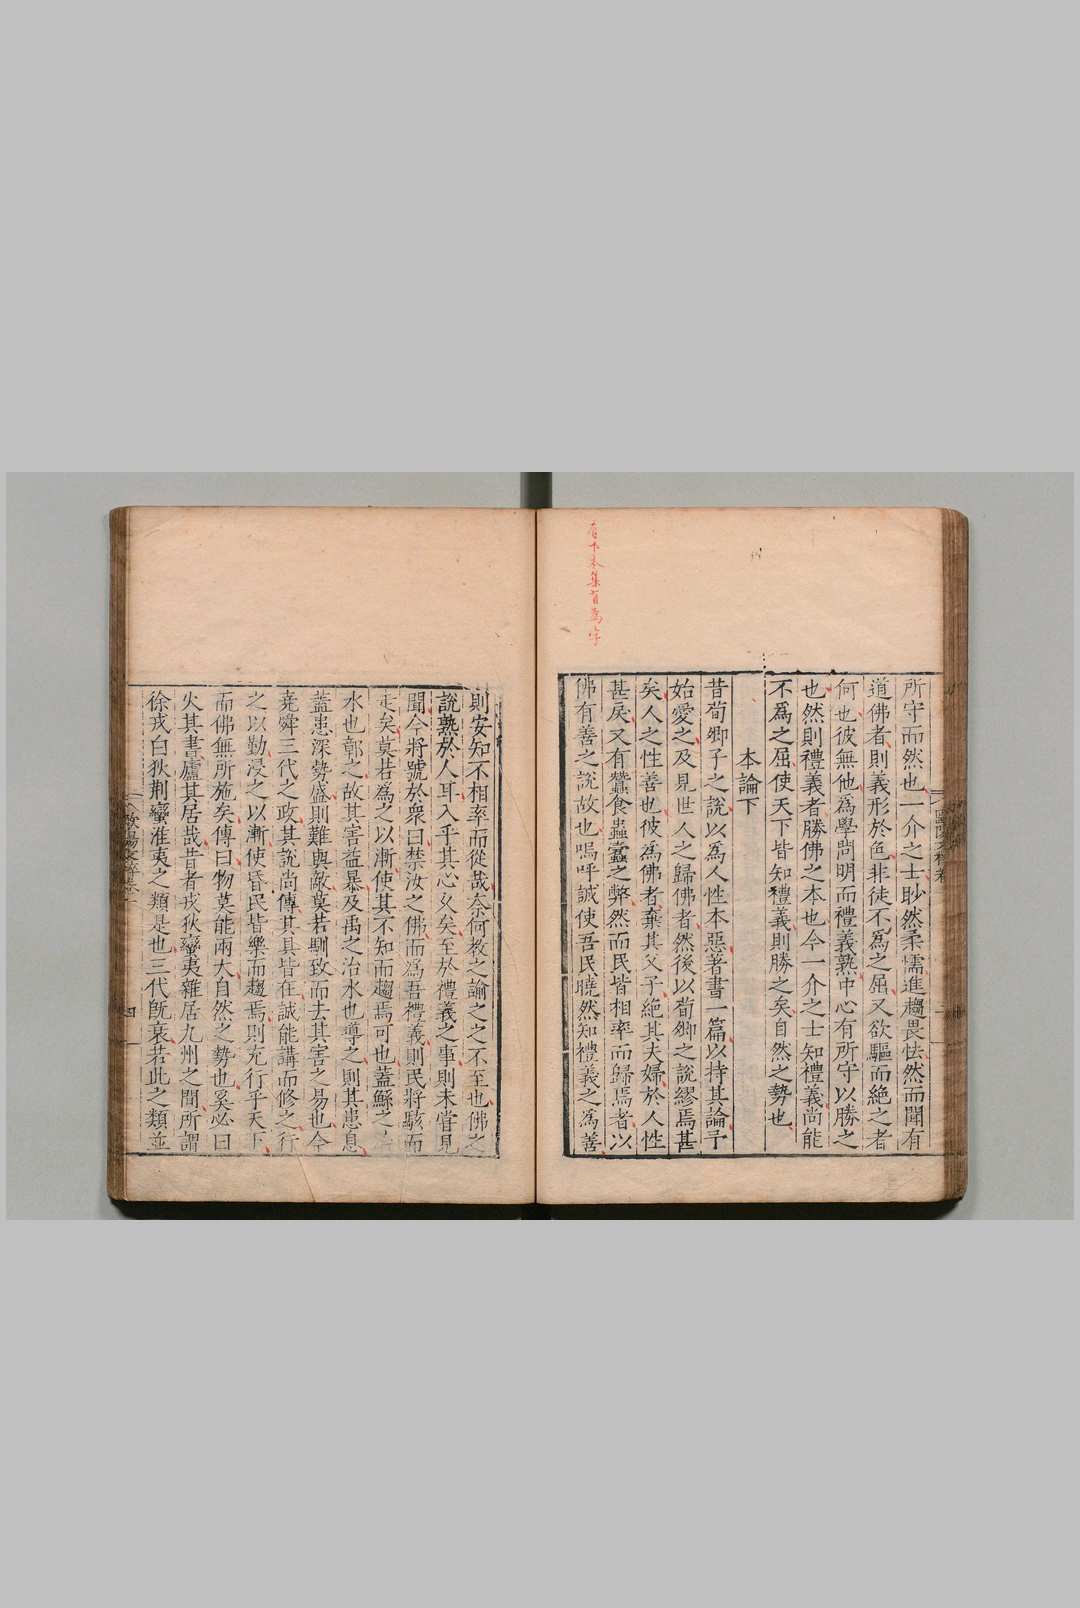 所守而然也一介之士眇然柔懦進趨畏怯然而聞有
道佛者則義形於色非徒不爲之屈又欲驅而絶之者
何也彼無他爲學問明而禮義熟中心有所守以勝之
也然則禮義者勝佛之本也今一介之士知禮義尚能
不爲之屈使天下皆知禮義則勝之矣自然之勢也
本論下
昔荀卿子之說以爲人性本惡著書一篇以持其論予
始愛之及見世人之歸佛者然後以荀卿之說繆焉甚
矣人之性善也彼爲佛者棄其父子絶其夫婦於人性
甚戾又有蠶食蟲蠹之弊然而民皆相率而歸焉者以
佛有善之說故也嗚呼誠使吾民曉然知禮義之爲善
則安知不相率而從哉奈何教之諭之之不至也佛之
說熟於人耳入乎其心久矣至於禮義之事則未嘗見
聞今將號於衆曰禁汝之佛而爲吾禮義則民將駭而
走矣莫若爲之以漸使其不知而趨焉可也蓋鯀之
水也鄣之故其害益暴及禹之治水也導之則其患息
蓋患深勢盛則難與敵莫若馴致而去其害之易也今
堯舜三代之政其說尚傳其具皆在誠能講而修之行
之以勤浸之以漸使昏民皆樂而趨焉則充行乎天下
而佛無所施矣傳曰物莫能兩大自然之勢也奚必曰
火其書廬其居哉昔者戎狄蠻夷雜居九州之間所謂
徐戎白狄荆蠻淮夷之類是也三代既衰若此之類並
四